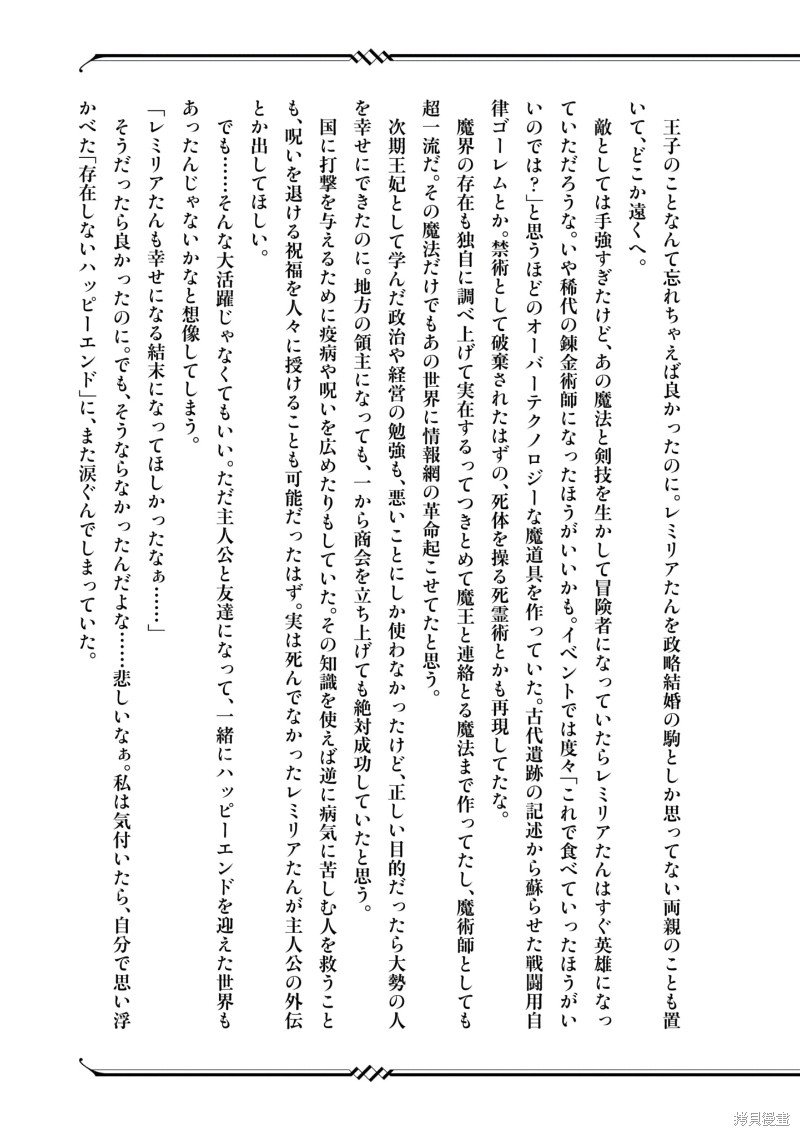 王子のことなんて忘れちゃえば良かったのに。レミリアたんを政略結婚の駒としか思ってない両親のことも置
いて、どこか遠くへ。
敵としては手強すぎたけど、あの魔法と剣技を生かして冒険者になっていたらレミリアたんはすぐ英雄になっ
ていただろうな。いや稀代の錬金術師になったほうがいいかも。イベントでは度々「これで食べていったほうがい
いのでは？」と思うほどのオーバーテクノロジーな魔道具を作っていた。古代遺跡の記述から蘇らせた戦闘用自
律ゴーレムとか。禁術として破棄されたはずの、死体を操る死霊術とかも再現してたな。
魔界の存在も独自に調べ上げて実在するってつきとめて魔王と連絡とる魔法まで作ってたし、魔術師としても
超一流だ。その魔法だけでもあの世界に情報網の革命起こせてたと思う。
次期王妃として学んだ政治や経営の勉強も、悪いことにしか使わなかったけど、正しい目的だったら大勢の人
を幸せにできたのに。地方の領主になっても、一から商会を立ち上げても絶対成功していたと思う。
国に打撃を与えるために疫病や呪いを広めたりもしていた。その知識を使えば逆に病気に苦しむ人を救うこと
も、呪いを退ける祝福を人々に授けることも可能だったはず。実は死んでなかったレミリアたんが主人公の外伝
とか出してほしい。
でも……そんな大活躍じゃなくてもいい。ただ主人公と友達になって、一緒にハッピーエンドを迎えた世界も
あったんじゃないかなと想像してしまう。
「レミリアたんも幸せになる結末になってほしかったなぁ……」
そうだったら良かったのに。でも、そうならなかったんだよな……悲しいなぁ。私は気付いたら、自分で思い浮
かべた「存在しないハッピーエンド」に、また涙ぐんでしまっていた。
拷貝漫畫